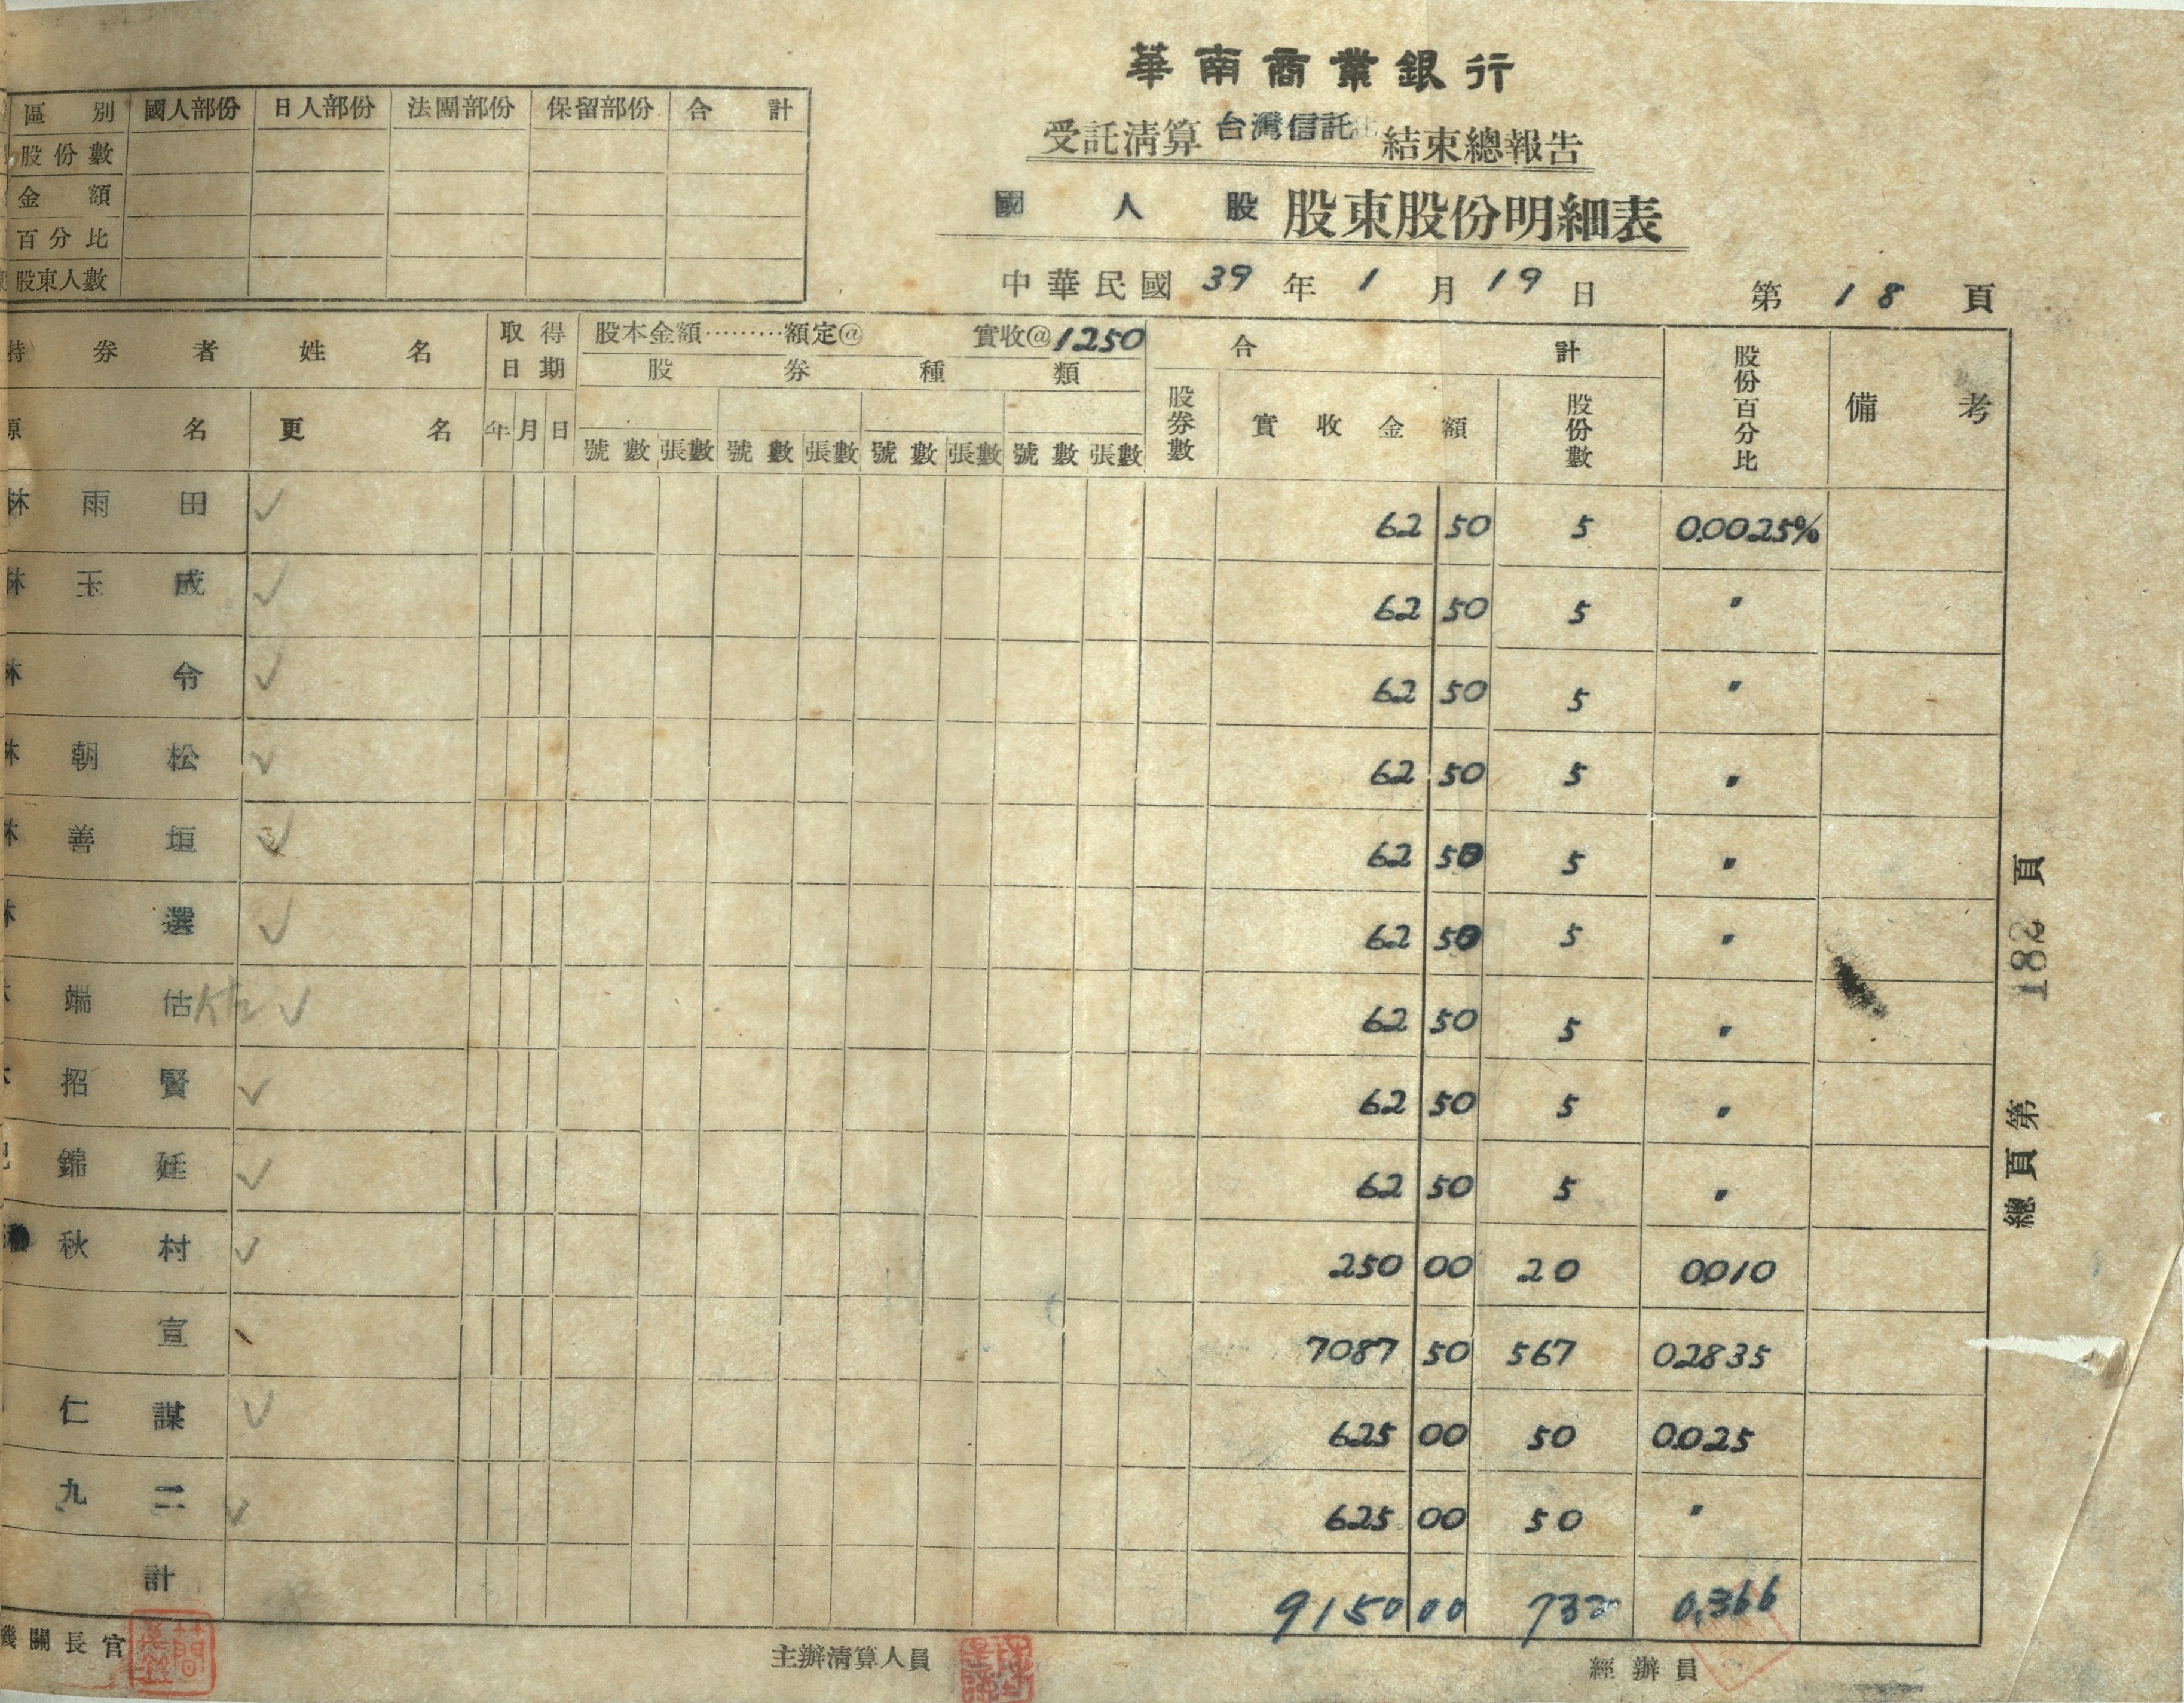 華南商業銀行
受託清算 台灣信託 結束總報告
國人股 股東股份明細表
中華民國 39 年 1 月 19 日 第 18 頁
區別 國人部份 日人部份 法團部份 保留部份 合計
股份數
金額
百分比
股東人數
持券者姓名 取得日期 股本金額………額定@ 實收@1250 合計 股份百分比 備考
股券種類
原名 更名 年 月 日 股券數 實收金額 股份數
號數 張數 號數 張數 號數 張數 號數 張數
林雨田 62 50 5 0.0025%
林玉成 62 50 5 〃
林令 62 50 5 〃
林朝松 62 50 5 〃
林善垣 62 50 5 〃
林選 62 50 5 〃
林端估 佐 62 50 5 〃
林招賢 62 50 5 〃
錦廷 62 50 5 〃
秋村 250 00 20 0.010
宣 7087 50 567 0.2835
仁謀 625 00 50 0.025
九二 625 00 50 〃
計 9150 00 732 0.366
機關長官 主辦清算人員 經辦員
總頁第 182 頁